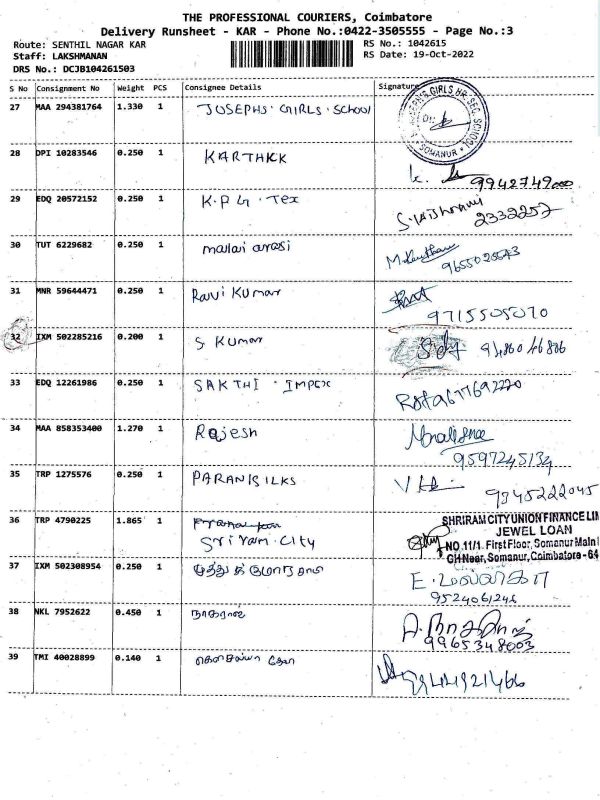 THE PROFESSIONAL COURIERS, Coimbatore
Delivery Runsheet - KAR - Phone No.:0422-3505555 - Page No.:3
Route: SENTHIL NAGAR KAR
RS No.: 1042615
Staff: LAKSHMANAN
RS Date: 19-Oct-2022
DRS No.: DCJB104261503
S No Consignment No Weight PCS Consignee Details Signature
27 MAA 294381764 1.330 1 JOSEPHS. GIRLS. School
GIRLS HR. SEC. SCHOOL SOMANUR
28 DPI 10283546 0.250 1 KARTHICK
9942749000
29 EDQ 20572152 0.250 1 K.P.G. Tex
2332257
30 TUT 6229682 0.250 1 malai arasi
31 MNR 59644471 0.250 1 Ravi Kumar
9715505070
32 IXM 502285216 0.200 1 S Kumar
33 EDQ 12261986 0.250 1 SAKTHI. IMPEX
34 MAA 858353400 1.270 1 Rajesh
9597245134
35 TRP 1275576 0.250 1 PARANI SILKS
9345222045
36 TRP 4790225 1.865 1
Sriram. City
SHRIRAM CITY UNION FINANCE LIM
JEWEL LOAN
NO.11/1. First Floor, Somanur Main
GH Near, Somanur, Coimbatore - 64
37 IXM 502308954 0.250 1
9524061246
38 NKL 7952622 0.450 1 நாகராஜ்
9965348003
39 TMI 40028899 0.140 1